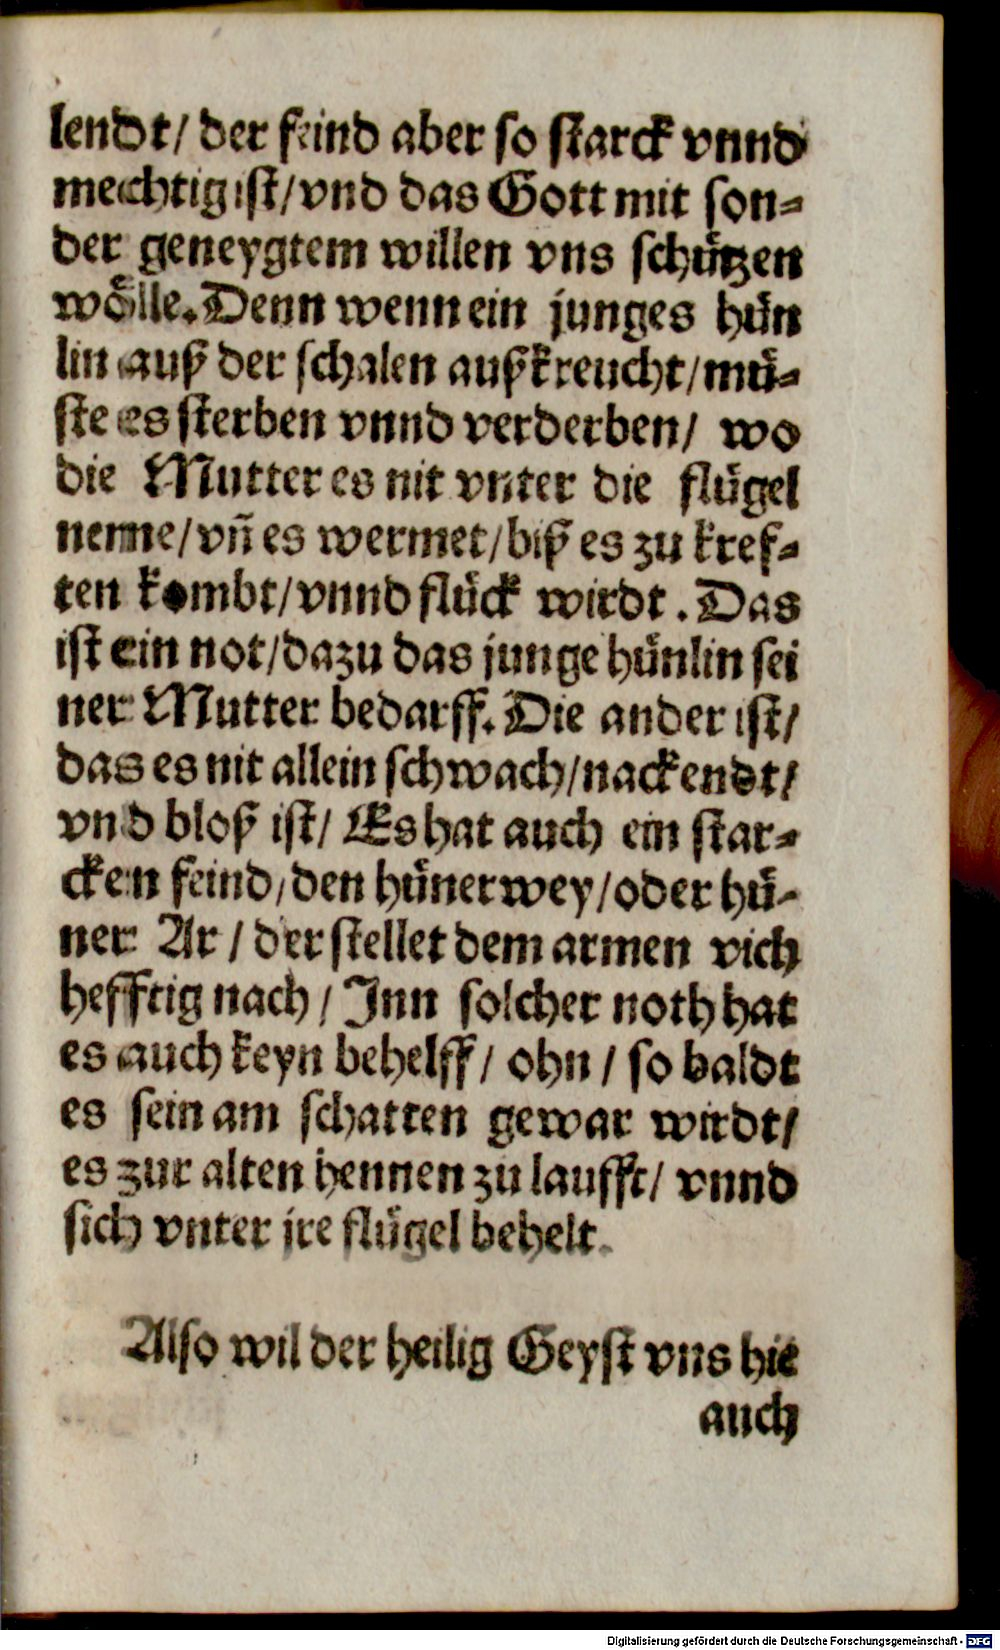 lendt/ der feind aber so starck vnnd
mechtig ist/ vnd das Gott mit son⸗
der geneygtem willen vns schuͤtzen
woͤlle. Denn wenn ein junges huͤn
lin auß der schalen außkreucht/ muͤ⸗
ste es sterben vnnd verderben/ wo
die Mutter es nit vnter die fluͤgel
neme/ vñ es wermet/ biß es zu kref⸗
ten kombt/ vnnd fluͤck wirdt. Das
ist ein not/ dazu das junge huͤnlin sei
ner Mutter bedarff. Die ander ist/
das es nit allein schwach/ nackendt/
vnd bloß ist/ Es hat auch ein star⸗
cken feind/ den huͤner wey/ oder huͤ⸗
ner Ar/ der stellet dem armen vich
hefftig nach/ Inn solcher noth hat
es auch keyn behelff/ ohn/ so baldt
es sein am schatten gewar wirdt/
es zur alten hennen zu laufft/ vnnd
sich vnter jre fluͤgel behelt.
Also wil der heilig Geyst vns hie
auch
Digitalisierung gefördert durch die Deutsche Forschungsgemeinschaft - DFG